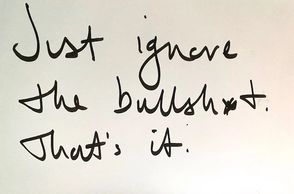 Just ignore
the bullsh*t.
That's it.